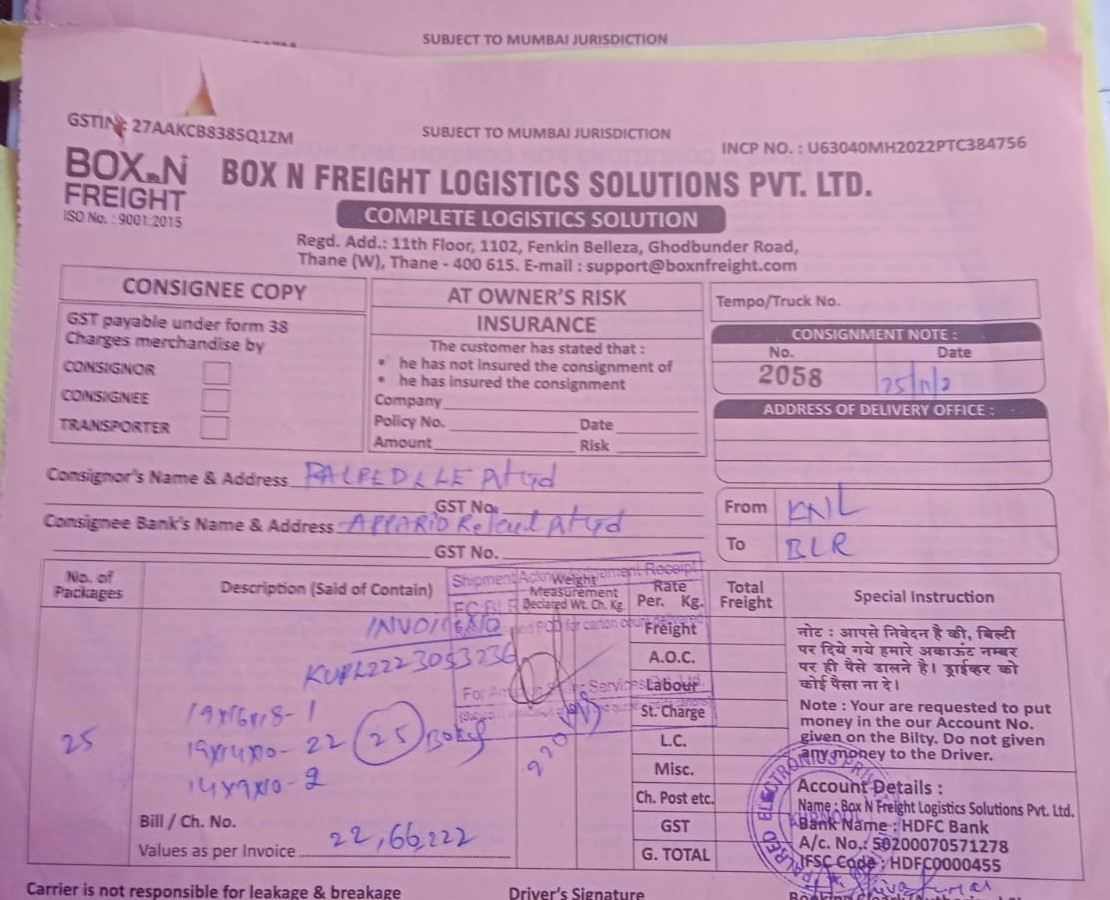 SUBJECT TO MUMBAI JURISDICTION
GSTIN : 27AAKCB8385Q1ZM
SUBJECT TO MUMBAI JURISDICTION
INCP NO. : U63040MH2022PTC384756
BOX N FREIGHT
ISO No. : 9001:2015
BOX N FREIGHT LOGISTICS SOLUTIONS PVT. LTD.
COMPLETE LOGISTICS SOLUTION
Regd. Add.: 11th Floor, 1102, Fenkin Belleza, Ghodbunder Road,
Thane (W), Thane - 400 615. E-mail : support@boxnfreight.com
CONSIGNEE COPY
GST payable under form 38
Charges merchandise by
CONSIGNOR
CONSIGNEE
TRANSPORTER
AT OWNER'S RISK
INSURANCE
The customer has stated that :
• he has not insured the consignment of
• he has insured the consignment
Company
Policy No. Date
Amount Risk
Tempo/Truck No.
CONSIGNMENT NOTE :
No. Date
2058
ADDRESS OF DELIVERY OFFICE :
Consignor's Name & Address
GST No.
Consignee Bank's Name & Address
GST No.
From KNL
To BLR
No. of Packages
Description (Said of Contain)
Weight
Measurement
Declared Wt. Ch. Kg.
Rate
Per. Kg.
Total Freight
Special Instruction
Shipment Receipt
INVOICE NO
25
19x16x18-1
19x14x10-22 25 Boxes
14x9x10-2
Freight
A.O.C.
Labour
St. Charge
L.C.
Misc.
Ch. Post etc.
GST
G. TOTAL
नोट : आपसे निवेदन है की, बिल्टी
पर दिये गये हमारे अकाऊंट नम्बर
पर ही पैसे डालने है। ड्राईव्हर को
कोई पैसा ना दे।
Note : Your are requested to put
money in the our Account No.
given on the Bilty. Do not given
any money to the Driver.
Account Details :
Name : Box N Freight Logistics Solutions Pvt. Ltd.
Bank Name : HDFC Bank
A/c. No.: 50200070571278
IFSC Code : HDFC0000455
Bill / Ch. No.
Values as per Invoice 22,66,222
Carrier is not responsible for leakage & breakage
Driver's Signature